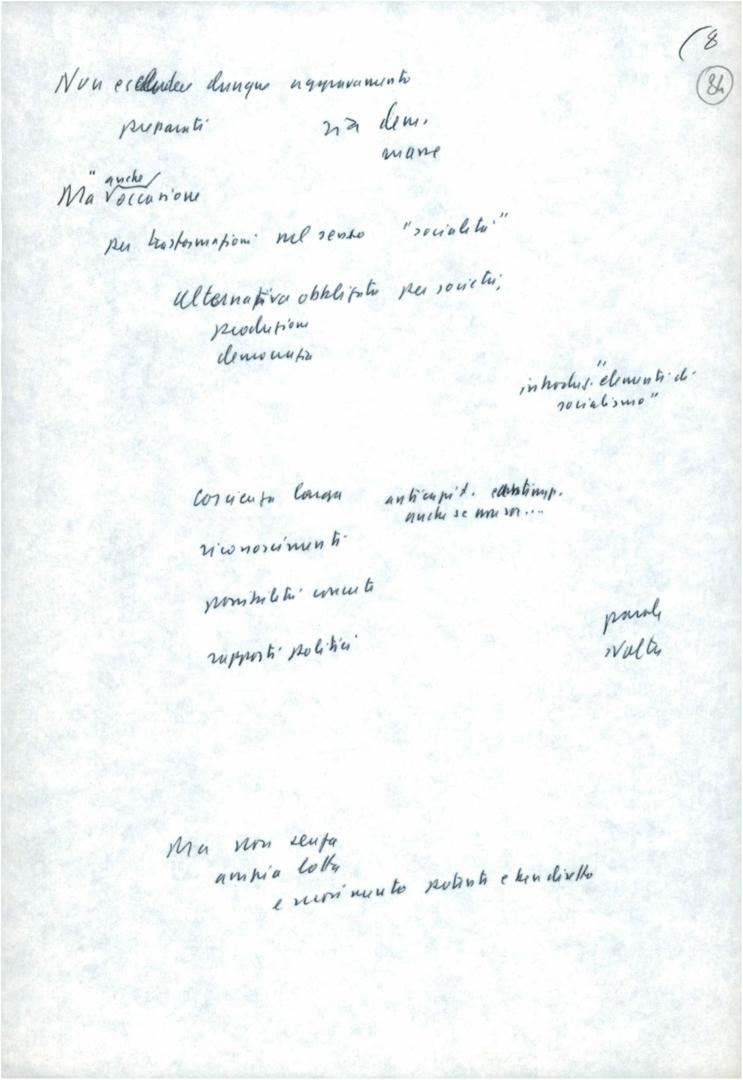 (8
84
Non escludere dunque aggravamento
preparati sia dem.
masse
Ma " anche
occasione
per trasformazioni nel senso "socialità"
alternativa obbligata per società,
produzione
democrazia
introduz. "elementi di
socialismo"
coscienza larga anticapit.
anche se non
riconoscimenti
possibilità concrete
rapporti politici
parole
svolta
Ma non senza
ampia lotta
e movimento potenti e ben diretto